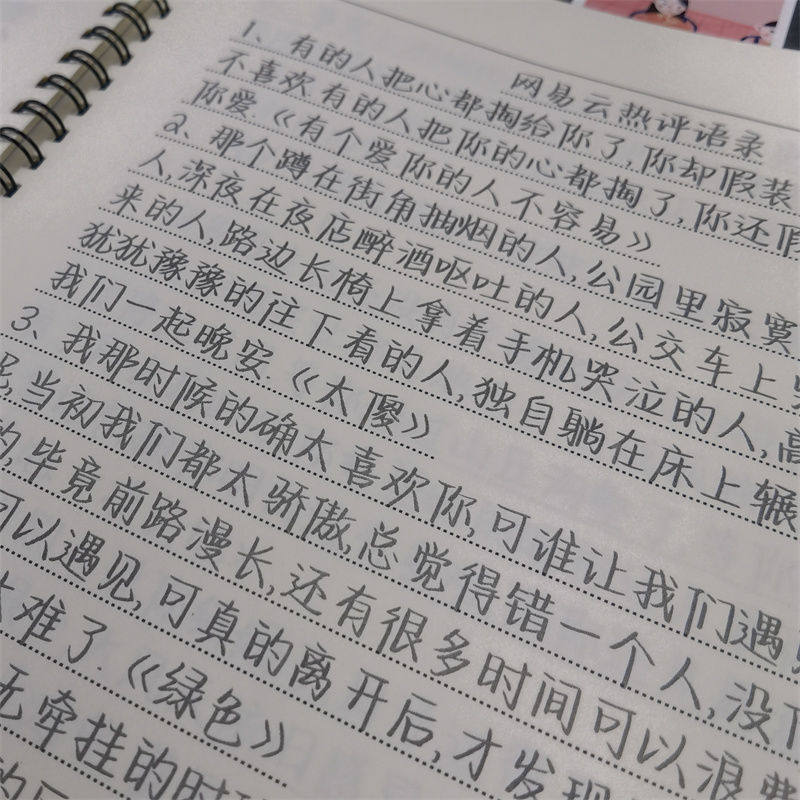 网易云热评语录
1、有的人把心都掏给你了,你却假装
不喜欢有的人把你的心都掏了,你还假
你爱.《有个爱你的人不容易》
2、那个蹲在街角抽烟的人,公园里寂寞
人,深夜在夜店醉酒呕吐的人,公交车上
来的人,路边长椅上拿着手机哭泣的人,高
犹犹豫豫的往下看的人,独自躺在床上辗
我们一起晚安.《太傻》
3、我那时候的确太喜欢你,可谁让我们遇见
呢,当初我们都太骄傲,总觉得错一个人,没
的,毕竟前路漫长,还有很多时间可以浪费
可以遇见,可真的离开后,才发现
太难了.《绿色》
无牵挂的时
的